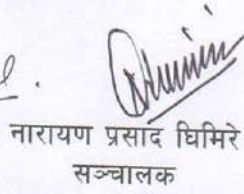 नारायण प्रसाद घिमिरे
सञ्चालक